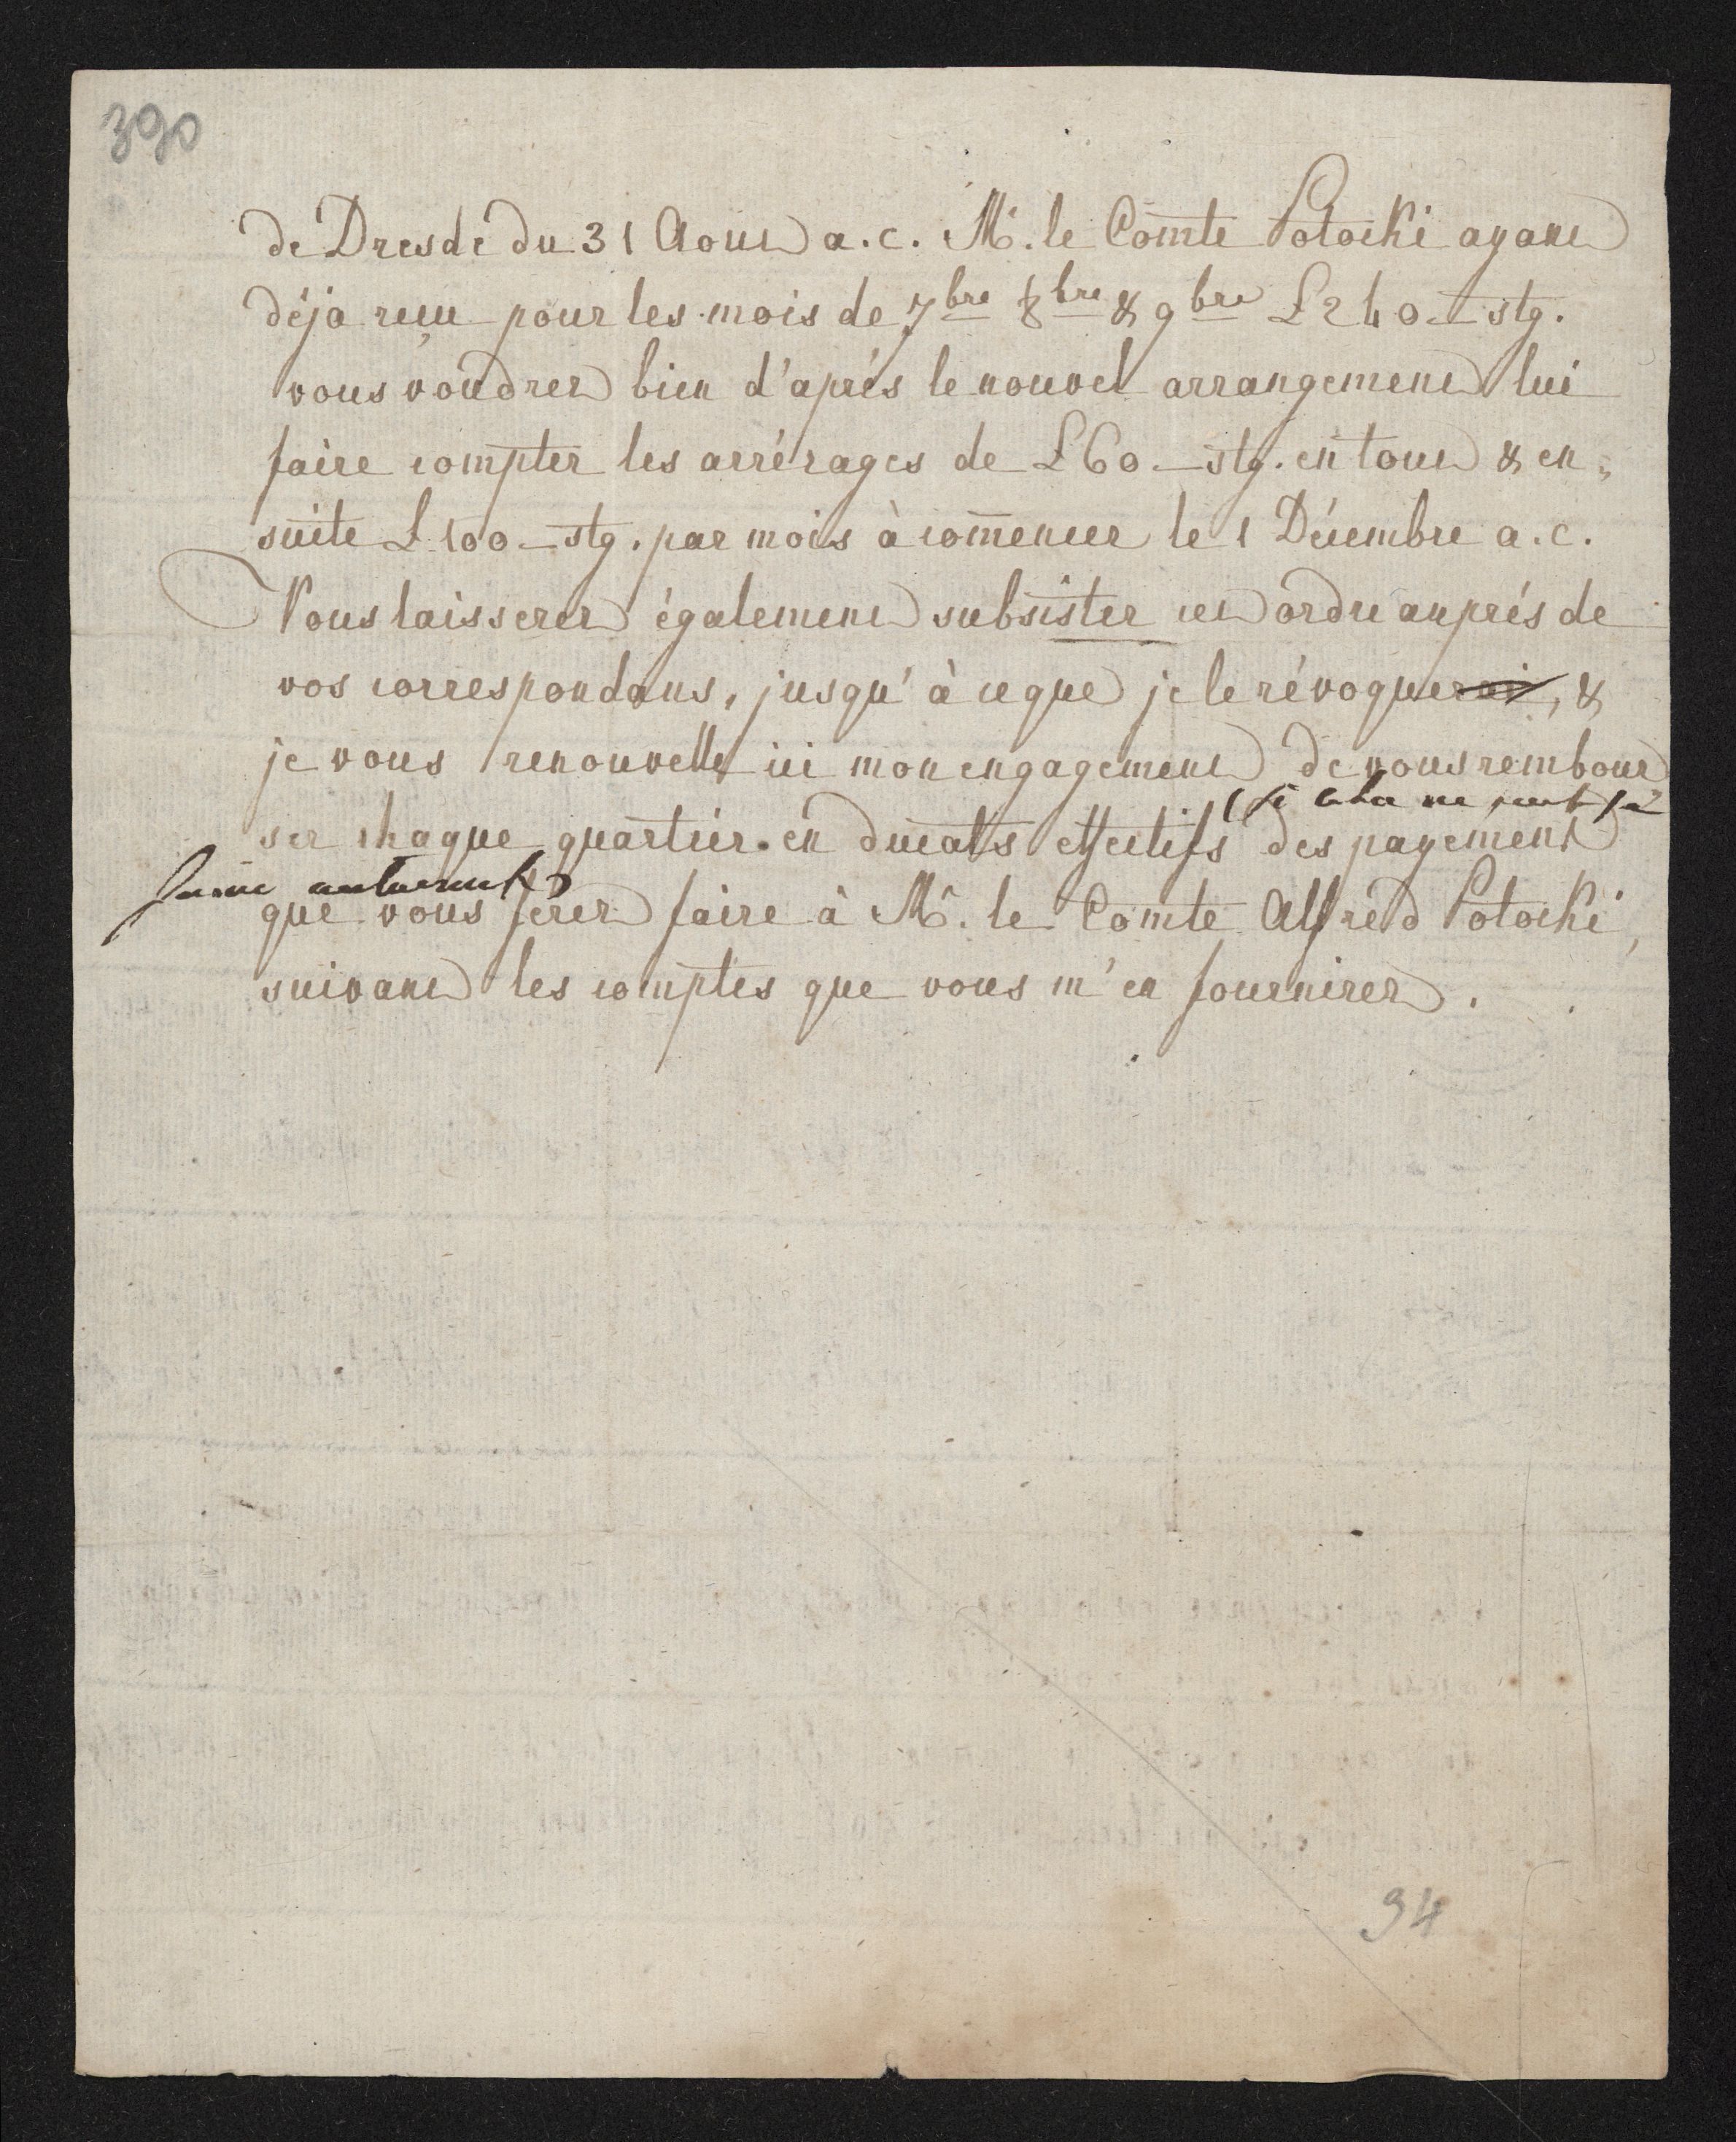 390
de Dresde du 31 Aout a. c. Mr. le Comte Potocki ayant
déja reçu pour les mois de 7bre 8bre & 9bre £ 240 — stg.
vous voudrez bien d'après le nouvel arrangement lui
faire compter les arrérages de £ 60 — stg. en tout & en„
suite £ 100 — stg. par mois à com̄encer le 1 Décembre a. c.
Vous laisserez également subsister cet ordre auprés de
vos correspondans, jusqu'à ce que je le révoquerai, &
je vous renouvelle ici mon engagement de vous rembour
(si cela ne peut se
ser chaque quartier en ducats effectifs des payement
faire autrement)
que vous ferez faire à Mr. le Comte Alfred Potocki,
suivant les comptes que vous m'en fournirez.
94